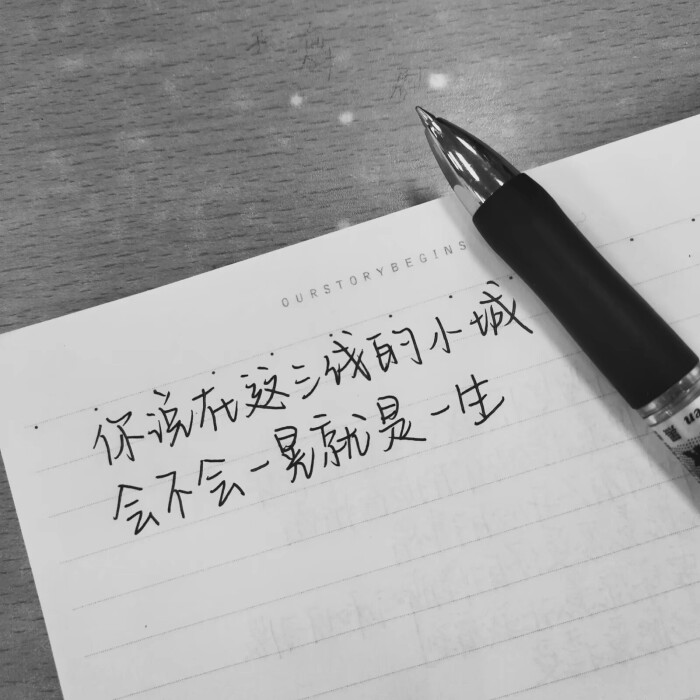 OURSTORYBEGINS
你说在这三线的小城
会不会一晃就是一生